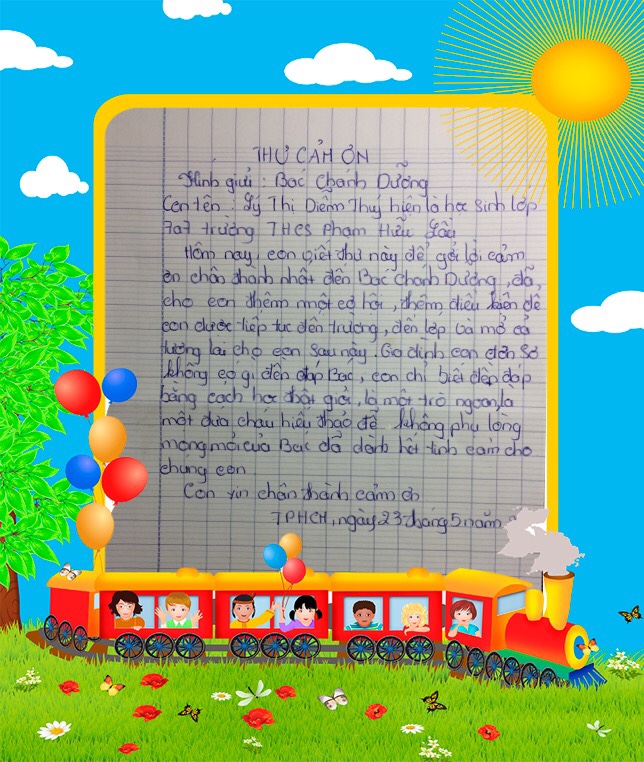 THƯ CẢM ƠN
Kính gửi : Bác Chánh Dưỡng
Con tên : Lý Thị Diễm Thuý hiện là học sinh lớp
7a7 trường THCS Phạm Hữu Lầu
Hôm nay, con viết thư này để gởi lời cảm
ơn chân thành nhất đến Bác Chánh Dưỡng, đã,
cho con thêm một cơ hội, thêm điều kiện để
con được tiếp tục đến trường, đến lớp và mở cả
tương lai cho con sau này. Gia đình con đơn sơ
không có gì đền đáp Bác, con chỉ biết đền đáp
bằng cách học thật giỏi, là một trò ngoan, là
một đứa cháu hiếu thảo để không phụ lòng
mong mỏi của Bác đã dành hết tình cảm cho
chúng con
Con xin chân thành cảm ơn
TPHCM, ngày 23 tháng 5 năm